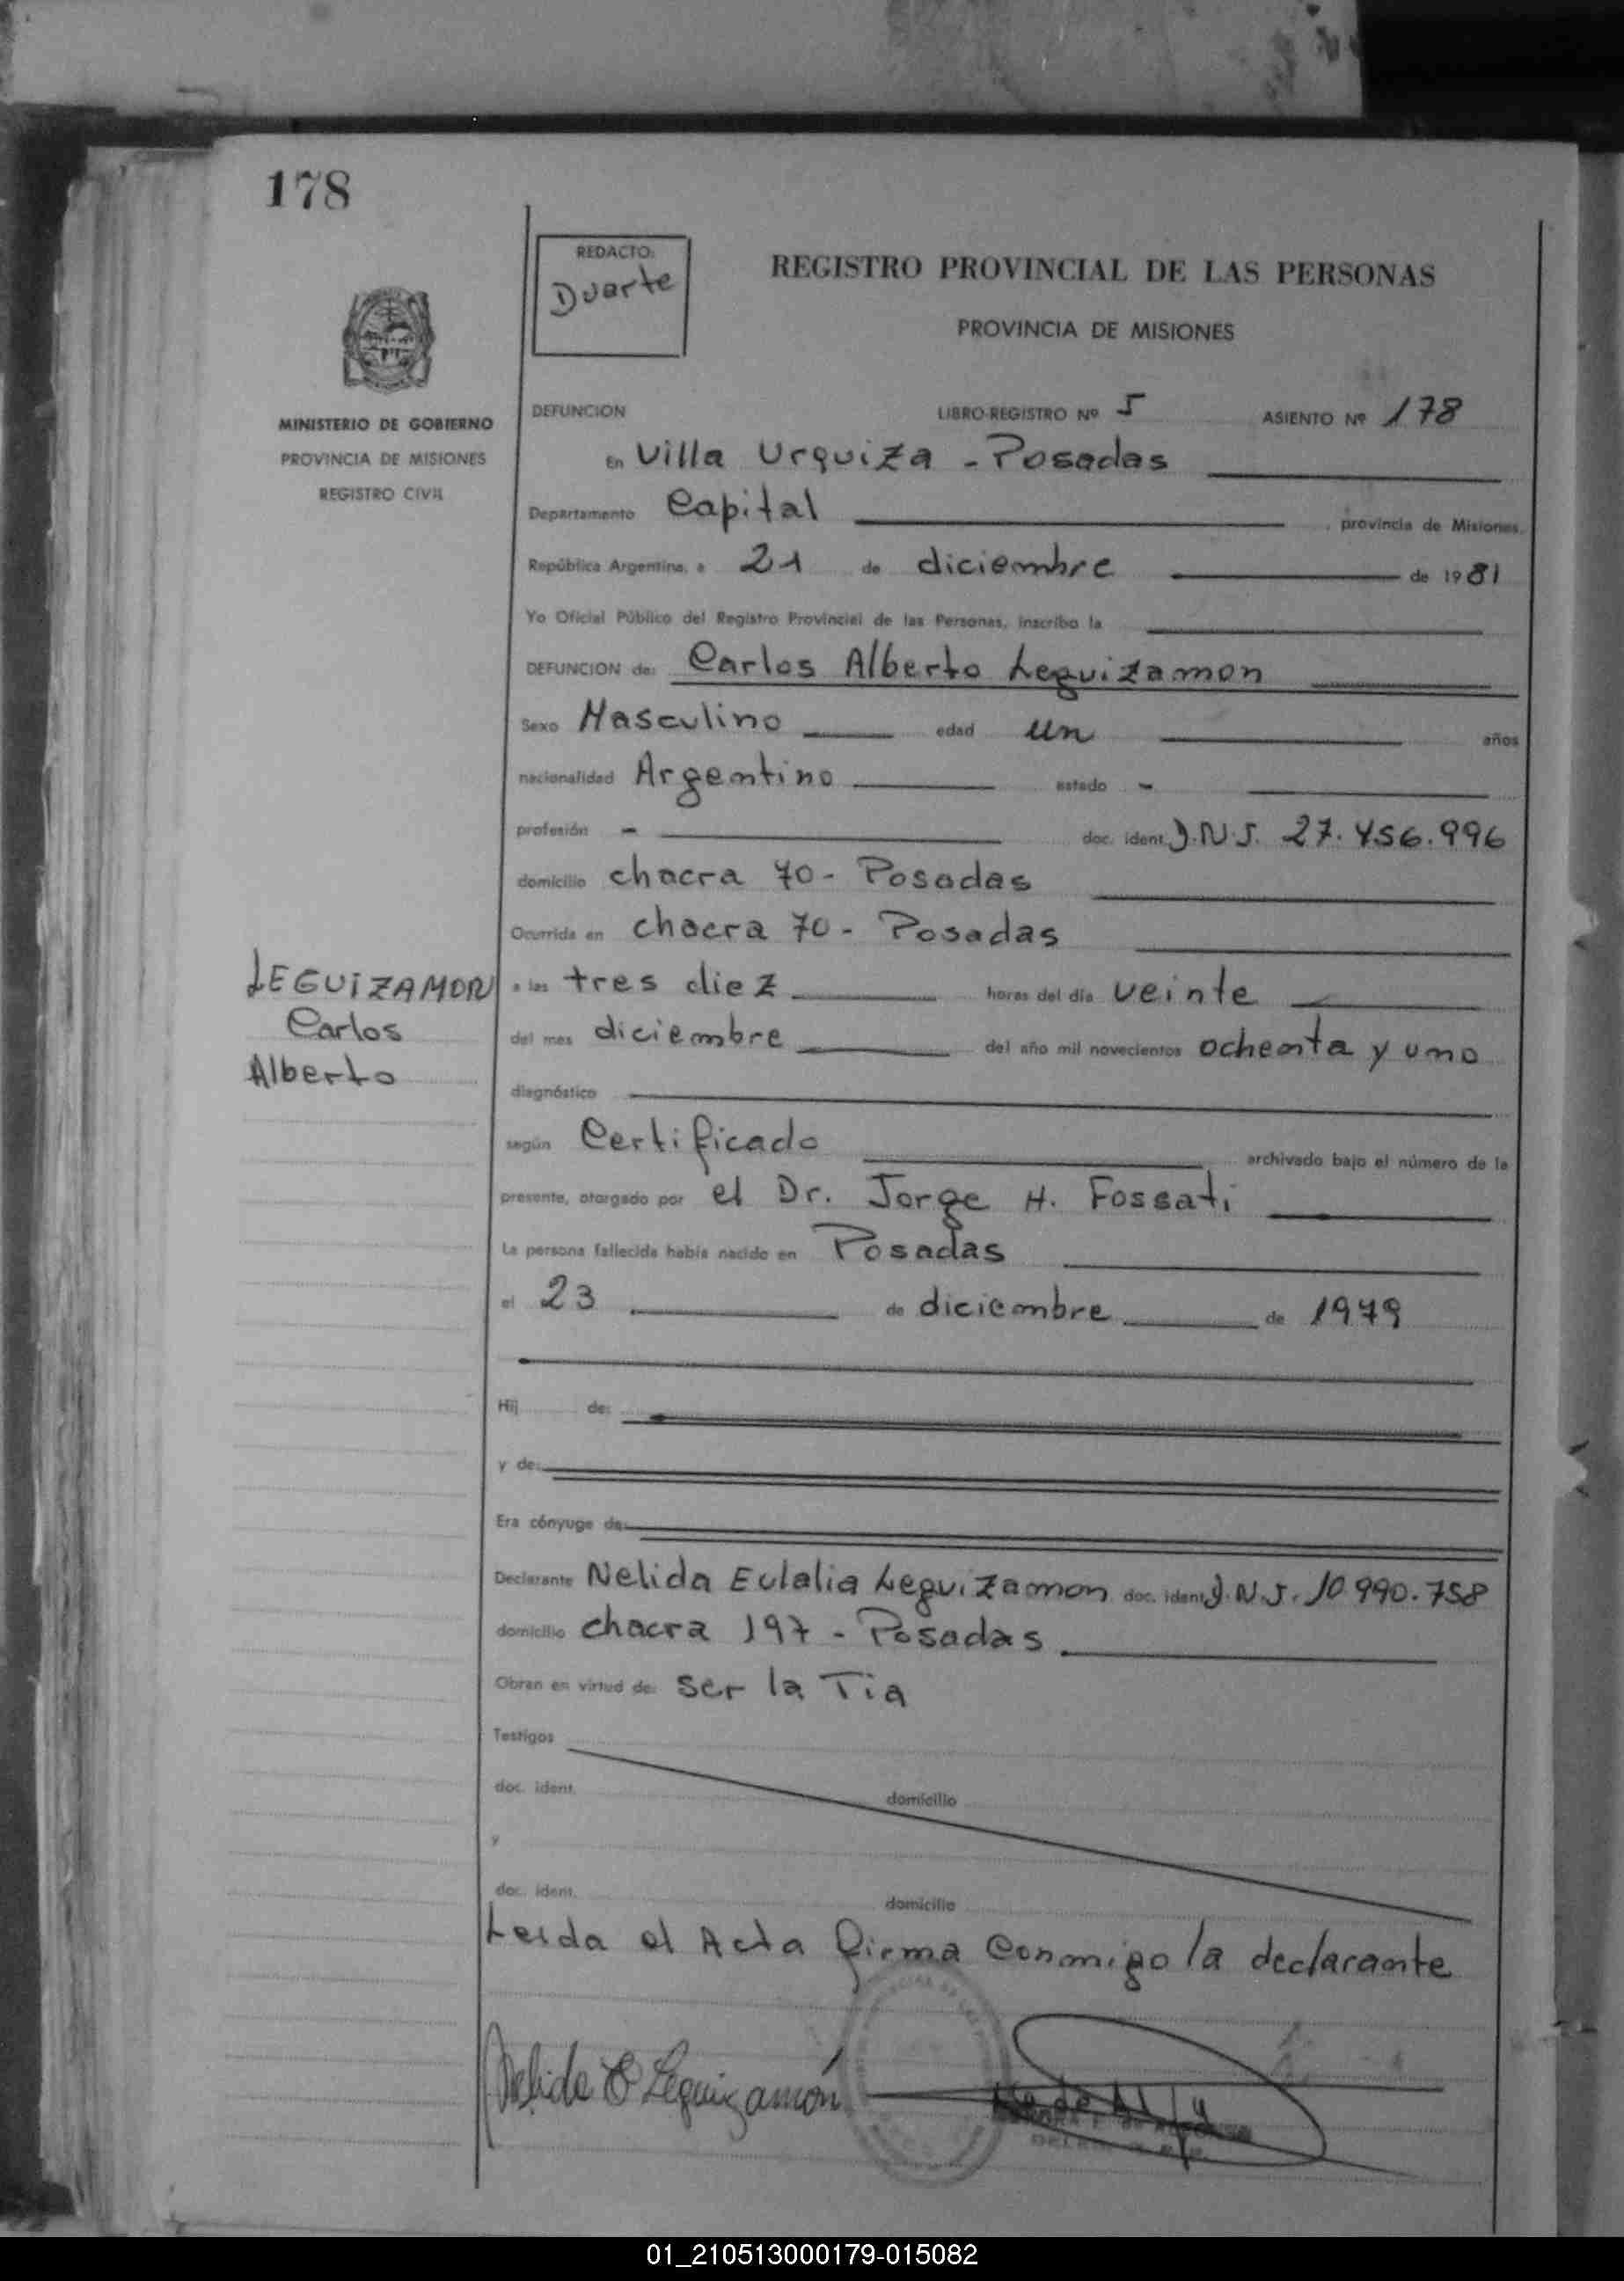 178
REDACTO:
Duarte
REGISTRO PROVINCIAL DE LAS PERSONAS
PROVINCIA DE MISIONES
MINISTERIO DE GOBIERNO
PROVINCIA DE MISIONES
REGISTRO CIVIL
DEFUNCION LIBRO-REGISTRO Nº 5 ASIENTO Nº 178
En Villa Urquiza - Posadas
Departamento Capital provincia de Misiones
República Argentina, a 21 de diciembre de 1981
Yo Oficial Público del Registro Provincial de las Personas, inscribo la
DEFUNCION de: Carlos Alberto Leguizamon
Sexo Masculino edad un años
nacionalidad Argentino estado -
profesión - doc. ident. D.N.I. 27.456.996
domicilio chacra 70 - Posadas
Ocurrida en chacra 70 - Posadas
LEGUIZAMON
Carlos
Alberto
a las tres diez horas del día veinte
del mes diciembre del año mil novecientos ochenta y uno
diagnóstico
según Certificado archivado bajo el número de la
presente, otorgado por el Dr. Jorge H. Fossati
La persona fallecida había nacido en Posadas
el 23 de diciembre de 1979
Hij de:
y de:
Era cónyuge de:
Declarante Nelida Eulalia Leguizamon doc. ident. D.N.I. 10.990.758
domicilio chacra 197 - Posadas
Obran en virtud de: ser la Tia
Testigos
doc. ident. domicilio
y
doc. ident. domicilio
Leida el Acta firma conmigo la declarante
Nelida E Leguizamón
01_210513000179-015082